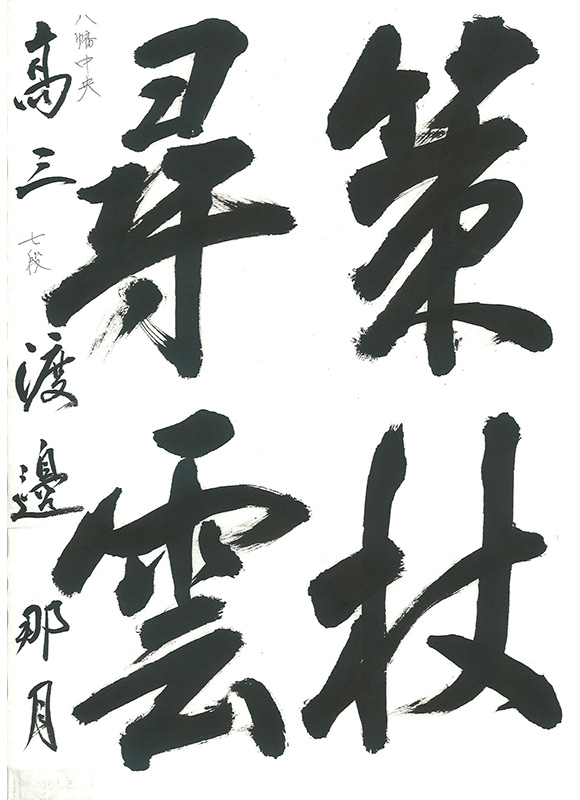 策杖
尋雲
八幡中央
高三 七段 渡邉那月